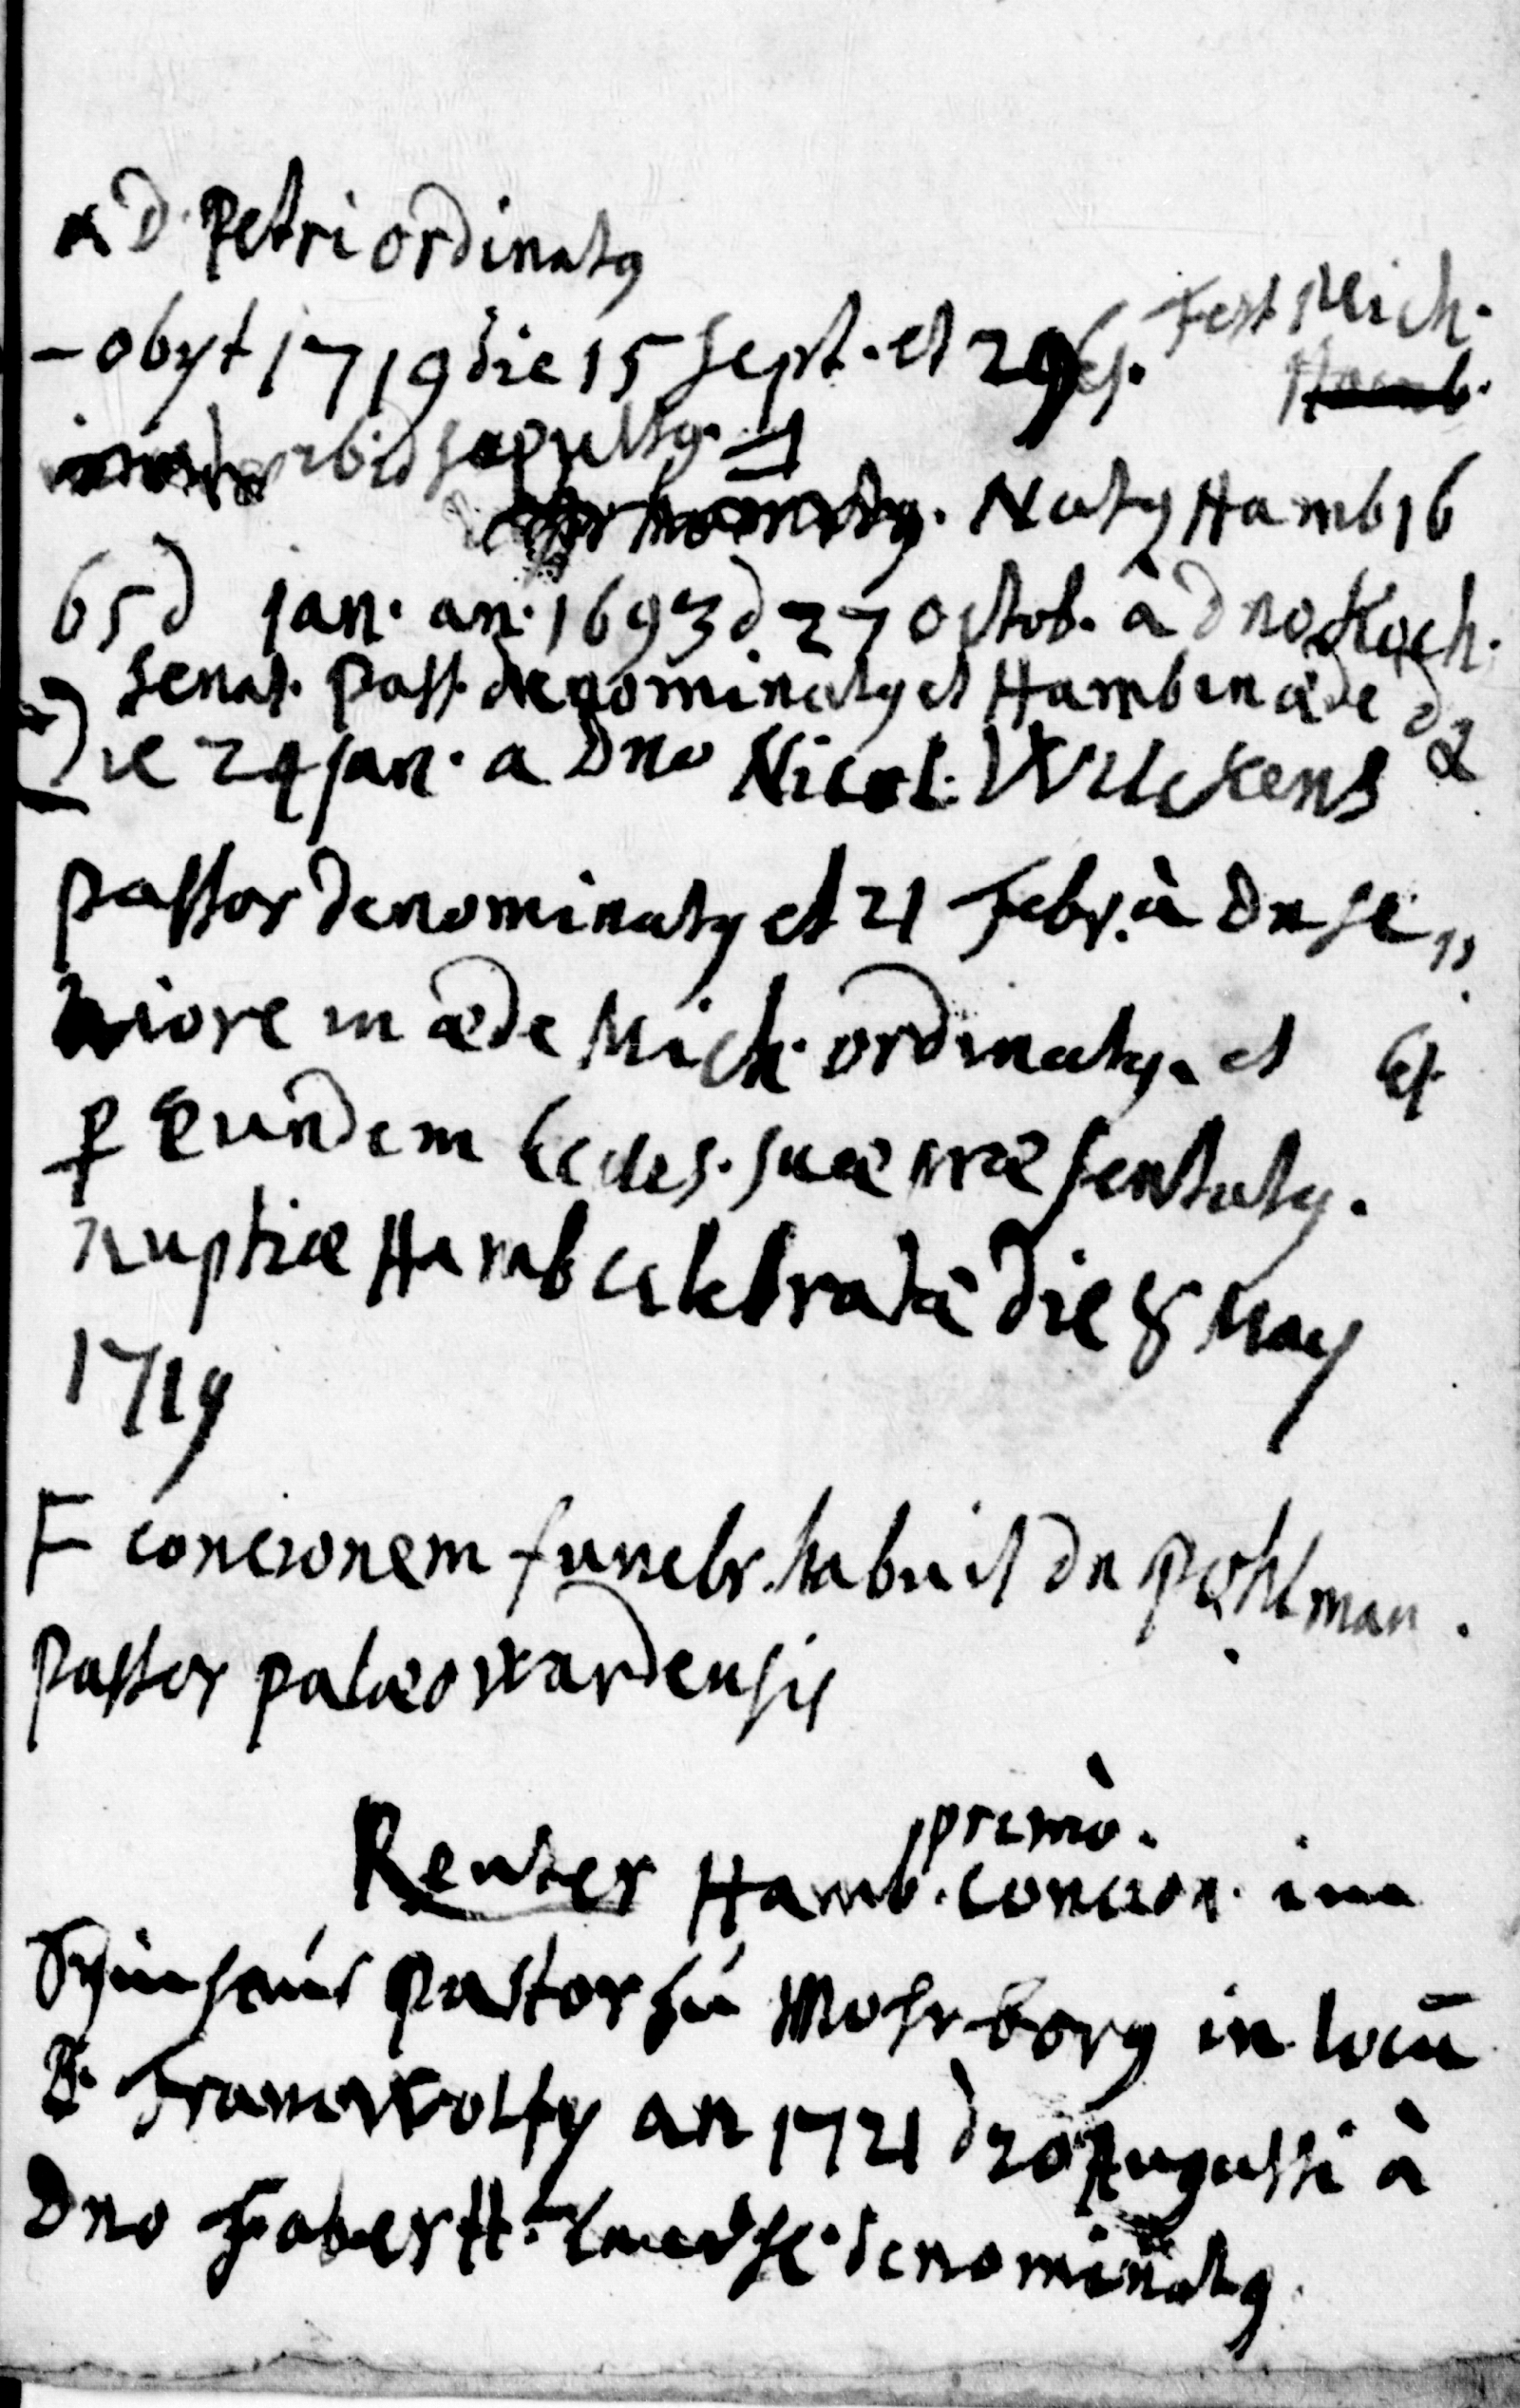 ad. Petri ordinatꝰ
– obyt 1719 die 15 Sept. et 29 ej. Fest Mich.
Hamb.
ibid sepultꝰ.
Natꝰ Hamb 16
65 d jan. an. 1693 d 27 octob. à dno Koch.
senat. past. denominatꝰ et Hamb in æde
Die 24 jan. a Dno Nicol. Wilckens
pastor denominatꝰ et 21 Febr. à Dn Se„
niore in æde Mich. ordinatꝰ. et
ꝑ Eundem Eccles. suæ præsentatꝰ.
nuptiæ Hamb celebratæ die 8 May
1719
F concionem funebr. habuit Dn Pohlman.
Pastor palæowardensis
primò.
Reuter Hamb. concion. im
Spinhaus Pastor zu Mohrborg in locū
B. Franc Wolfy an 1721 d 20 Augusti à
Dno Faber denominatꝰ.